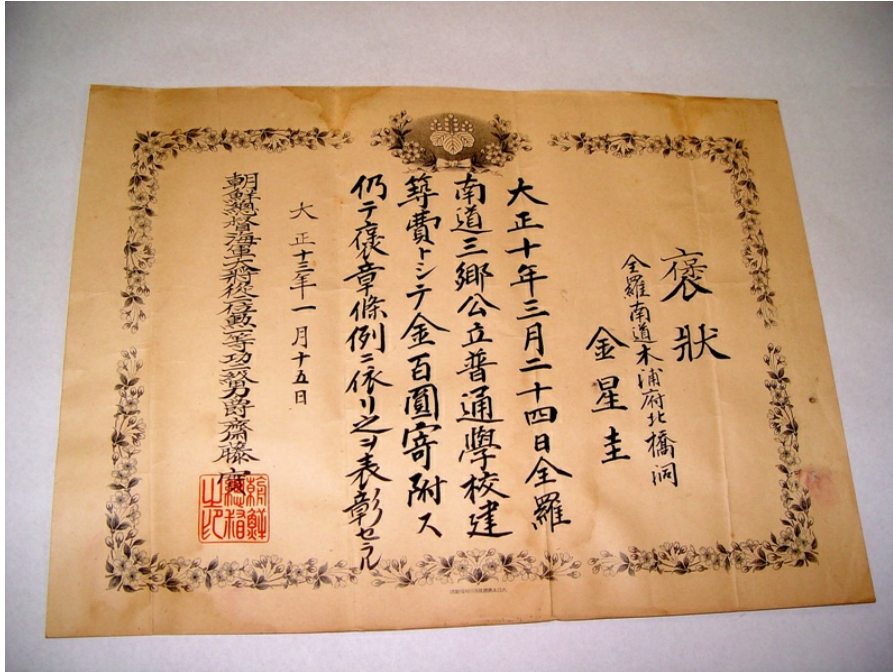 褒狀
全羅南道木浦府北橋洞
金星圭
大正十年三月二十四日全羅
南道三鄉公立普通學校建
築費トシテ金百圓寄附ス
仍テ褒章條例ニ依リ之ヲ表彰セラル
大正十三年一月十五日
朝鮮總督海軍大將從二位勳一等功二級男爵齋藤實
朝鮮總督之印